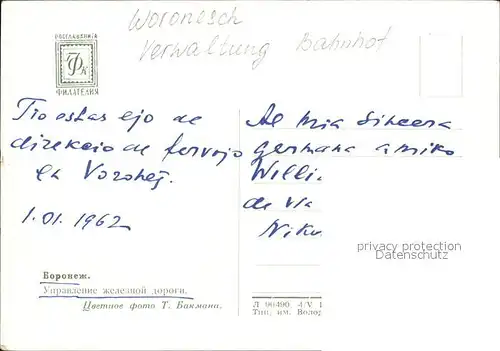 Woronesch
Verwaltung Bahnhof
РОСГЛАВКНИГА
ФК
ФИЛАТЕЛИЯ
Tio estas ejo de
direkcio de fervojo
en Voroneĵ.
1.01.1962
Al mia sincera
germana amiko
Willi
de via
Niko
privacy protection
Datenschutz
Воронеж.
Управление железной дороги.
Цветное фото Т. Бакмана.
Л 90490 4/V 1
Тип. им. Волод